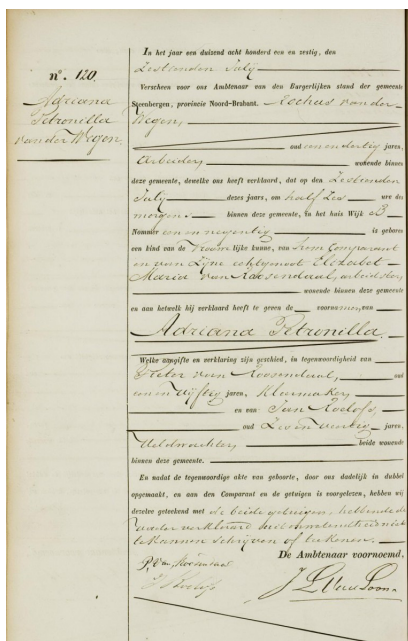 n°. 120.
Adriana
Petronilla
van der Wegen.
In het jaar een duizend acht honderd een en zestig, den
Zestienden Julij
Verscheen voor ons Ambtenaar van den Burgerlijken stand der gemeente
Steenbergen, provincie Noord-Brabant. Rochus van der
Wegen,
oud een en dertig jaren,
Arbeider, wonende binnen
deze gemeente, dewelke ons heeft verklaard, dat op den Zestienden
Julij dezes jaars, om half Zes ure des
morgens binnen deze gemeente, in het huis Wijk B
Nommer een en negentig is geboren
een kind van de Vrouwelijke kunne, van hem Comparant
en van Zijne echtgenoot Elizabet
Maria van Roosendaal, arbeidster,
wonende binnen deze gemeente
en aan hetwelk hij verklaard heeft te geven de voornamen, van
Adriana Petronilla.
Welke aangifte en verklaring zijn geschied, in tegenwoordigheid van
Pieter van Roosendaal, oud
een en vijftig jaren, Kleermaker,
en van Jan Roelofs,
oud Zes en veertig jaren,
Veldwachter, beide wonende
binnen deze gemeente.
En nadat de tegenwoordige akte van geboorte, door ons dadelijk in dubbel
opgemaakt, en aan den Comparant en de getuigen is voorgelezen, hebben wij
dezelve geteekend met de beide getuigen, hebbende de
vader verklaard
te kunnen schrijven of teekenen.
De Ambtenaar voornoemd.
P. Van Roosendaal
J Roelofs